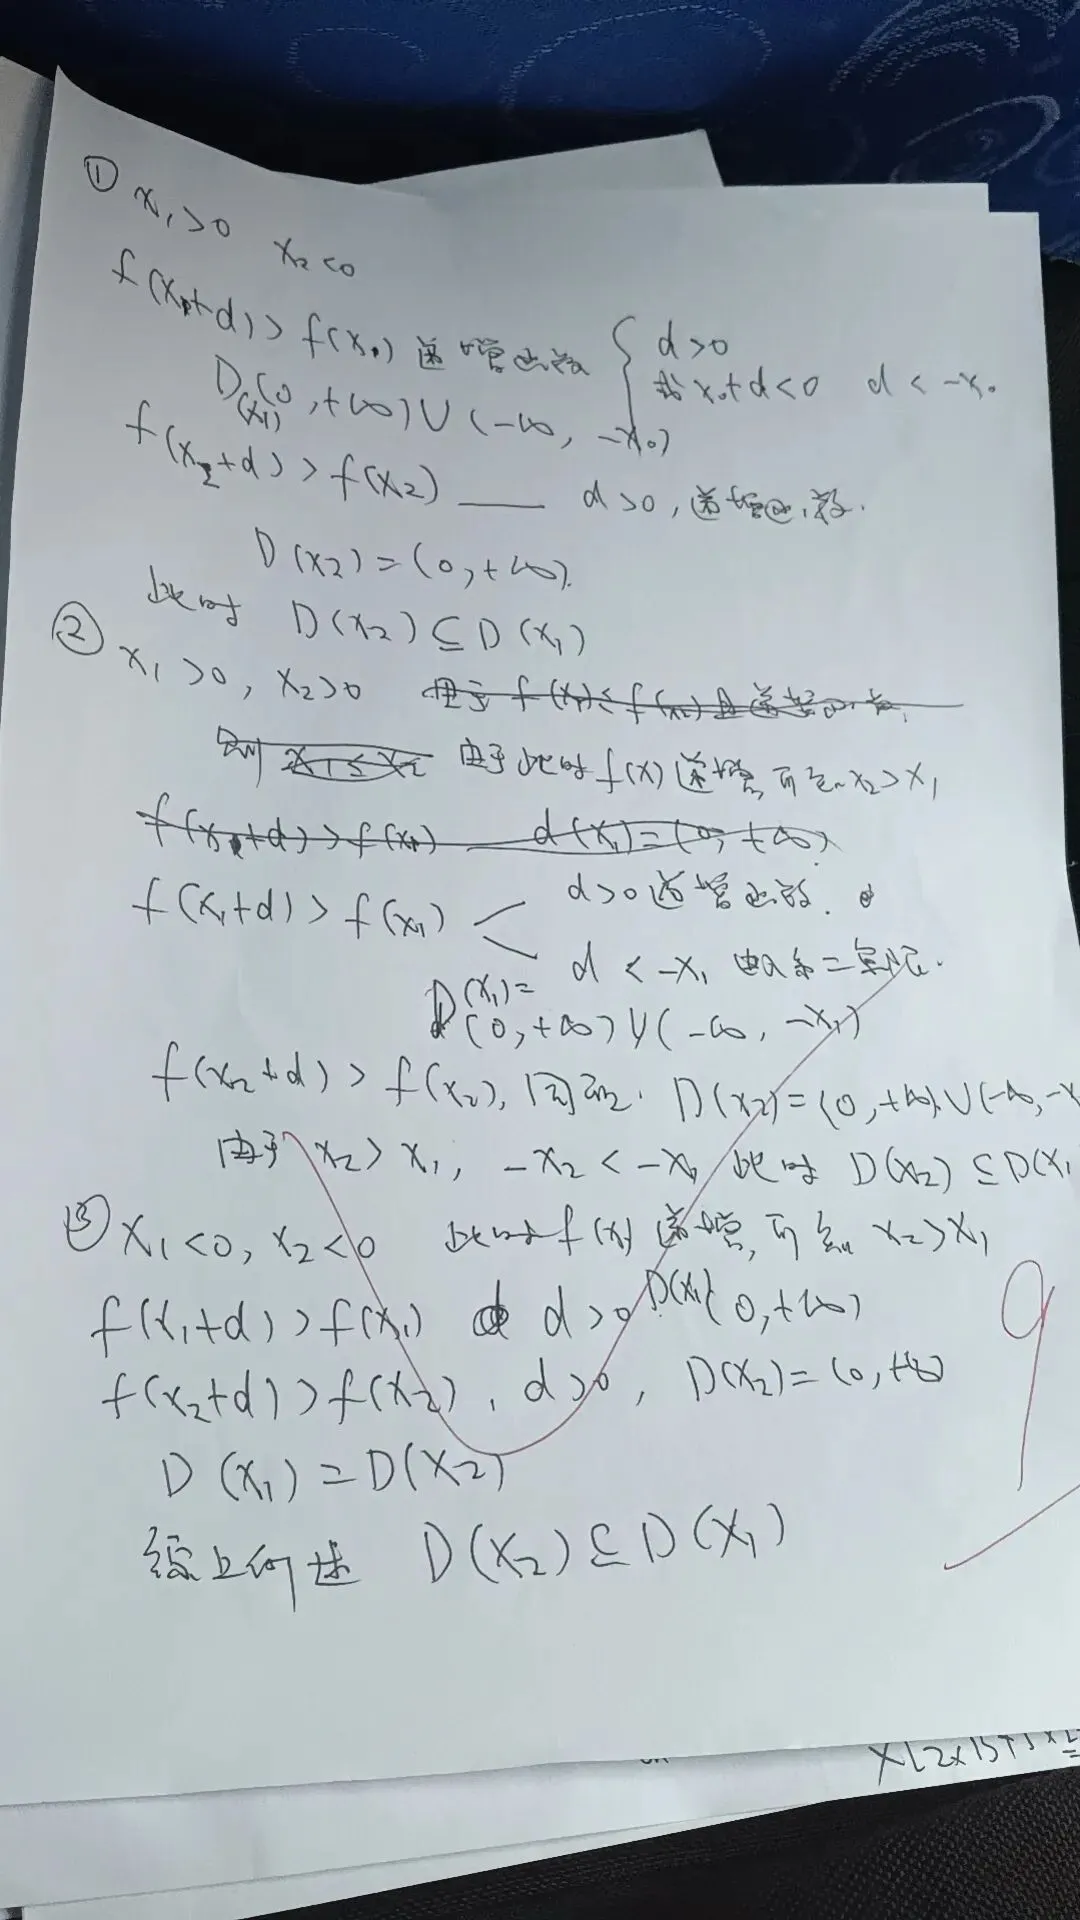 ① x₁>0 x₂<0
f(x₁+d)>f(x₀) 递增函数 { d>0
若x₀+d<0 d<-x₀
D(x₁)(0,+∞)∪(-∞,-x₀)
f(x₂+d)>f(x₂) —— d>0,递增函数.
D(x₂)=(0,+∞).
此时 D(x₂)⊆D(x₁)
② x₁>0, x₂>0 由于 f(x₁)≤f(x₂)且递增函数,
则 x₁≤x₂ 由于此时f(x)递增,可知x₂>x₁
f(x₁+d)>f(x₁) d(x₁)=(0,+∞)
f(x₁+d)>f(x₁) < d>0递增函数.
d<-x₁ 由
D(x₁)=
(0,+∞)∪(-∞,-x₁)
f(x₂+d)>f(x₂),同理. D(x₂)=(0,+∞)∪(-∞,-x
由于 x₂>x₁, -x₂<-x₁ 此时 D(x₂)⊆D(x₁
③ x₁<0, x₂<0 此时f(x)递增,可知 x₂>x₁
f(x₁+d)>f(x₁) d>0 D(x₁)(0,+∞)
f(x₂+d)>f(x₂), d>0, D(x₂)=(0,+∞
D(x₁)=D(x₂)
综上所述 D(x₂)⊆D(x₁)
9